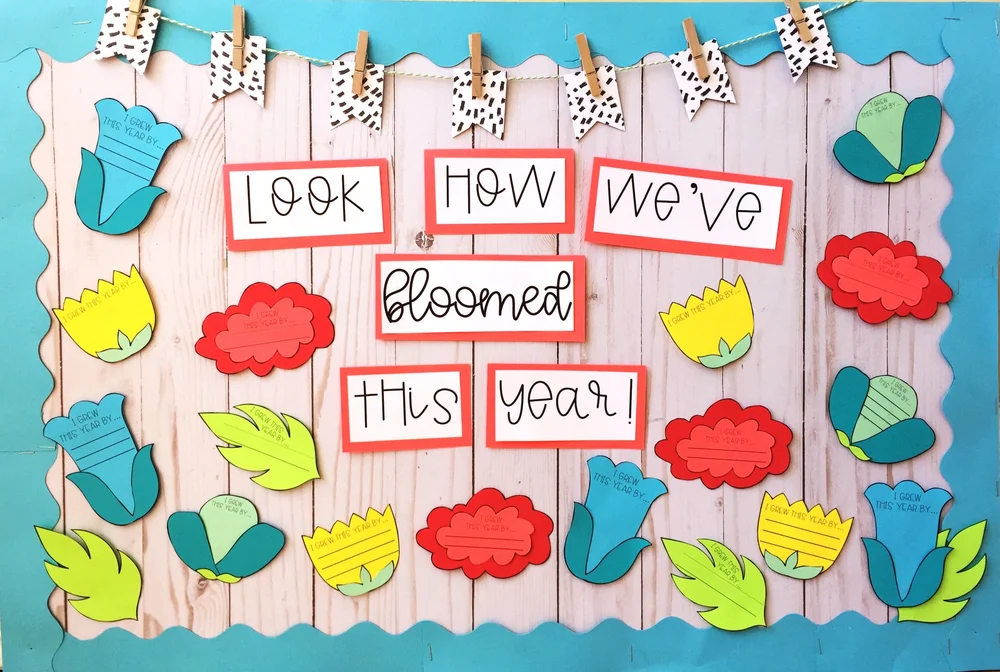 LOOK HOW We've
bloomed
tHis year!
I GREW
THIS YEAR BY...
I GREW
THIS YEAR BY...
I GREW
THIS YEAR BY...
I GREW THIS YEAR BY...
I GREW
THIS YEAR BY...
I GREW THIS YEAR BY...
I GREW
THIS YEAR BY...
I GREW
THIS YEAR BY...
I GREW
THIS YEAR BY...
I GREW
THIS YEAR BY...
I GREW
THIS YEAR BY...
I GREW THIS YEAR BY...
I GREW
THIS YEAR BY...
I GREW
THIS YEAR BY...
I GREW
THIS YEAR BY...
I GREW THIS YEAR BY...
I GREW
THIS YEAR BY...